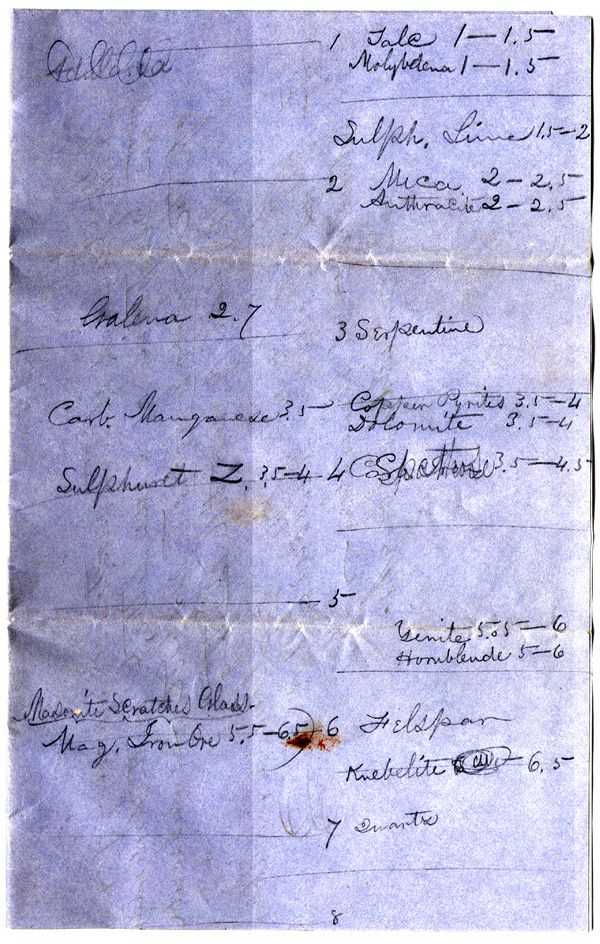 1 Talc 1 — 1.5
Molybdena 1 — 1.5
Sulph. Lime 1.5 — 2
2 Mica 2 — 2.5
Anthracite 2 — 2.5
Galena 2.7
3 Serpentine
Carb. Manganese 3.5
Copper Pyrites 3.5 — 4
Dolomite 3.5 — 4
Sulphuret Z. 3.5 — 4
4 3.5 — 4.5
5
Yenite 5.5 — 6
Hornblende 5 — 6
Masonite Scratches Glass.
Mag. Iron Ore 5.5 — 6.5
6 Felspar
Knebelite 6.5
7 Quartz
8